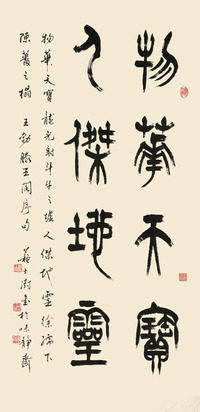 物華天寶
人傑地靈
物華天寶龍光射斗牛之墟人傑地靈徐孺下
陳蕃之榻 王勃滕王閣序句 蘇士澍書於味靜齋